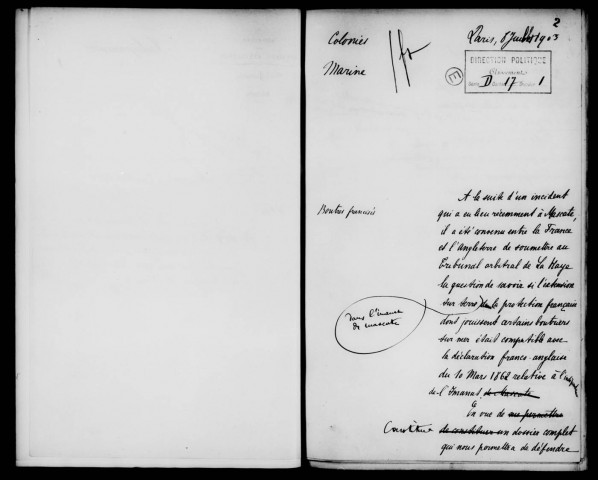 2
Colonies
Paris, 8 Juillet 1903
Marine
DIRECTION POLITIQUE
E
D 17 1
Boutres francisés
A la suite d'un incident
qui a eu lieu récemment à Mascate,
il a été convenu entre la France
et l'Angleterre de soumettre au
Tribunal arbitral de La Haye
la question de savoir si l'extension
sur terre de la protection française
dans l'Imanat
de Mascate
dont jouissent certains boutriers
sur mer était compatible avec
la déclaration franco-anglaise
du 10 Mars 1862 relative à l'
de l'Imanat de Mascate
En vue de me permettre
Constituer de constituer un dossier complet
qui nous permettra de défendre